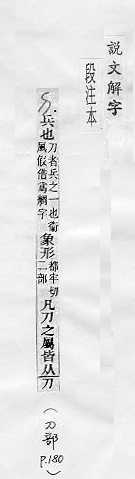 說文解字
段注本
兵也刀者兵之一也衞風假借爲鯛字象形都牢切二部凡刀之屬皆从刀
(刀部 P.180)